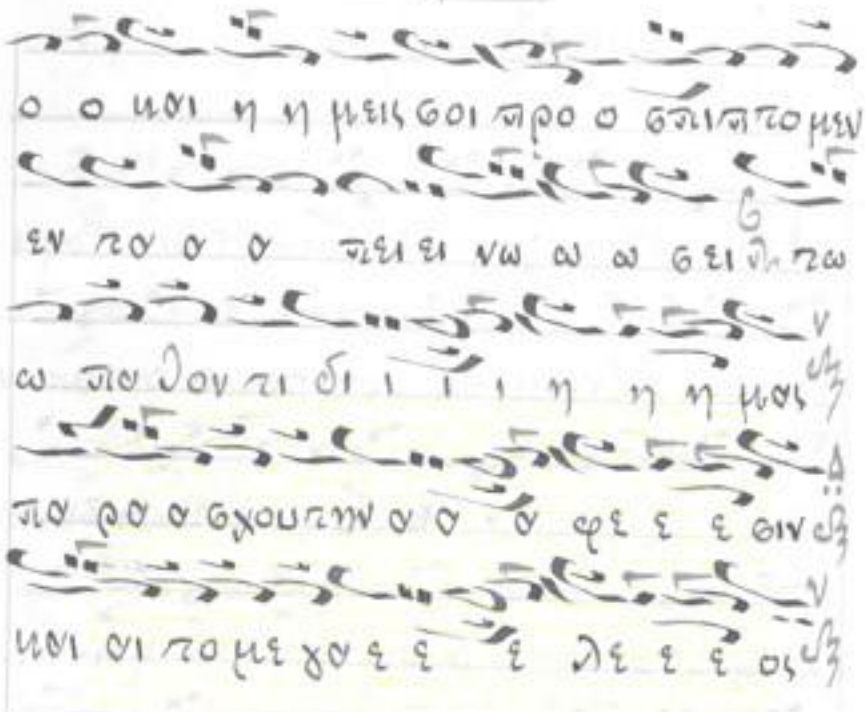 ο ο και η η μεις σοι προ ο σπιπτομεν
εν τα α α πει ει νω ω ω σει τω
ω παθοντι δι ι ι ι η η η μας
πα ρα α σχουτην α α α φε ε ε σιν
και αι το με γα ε ε ε λε ε ε ος